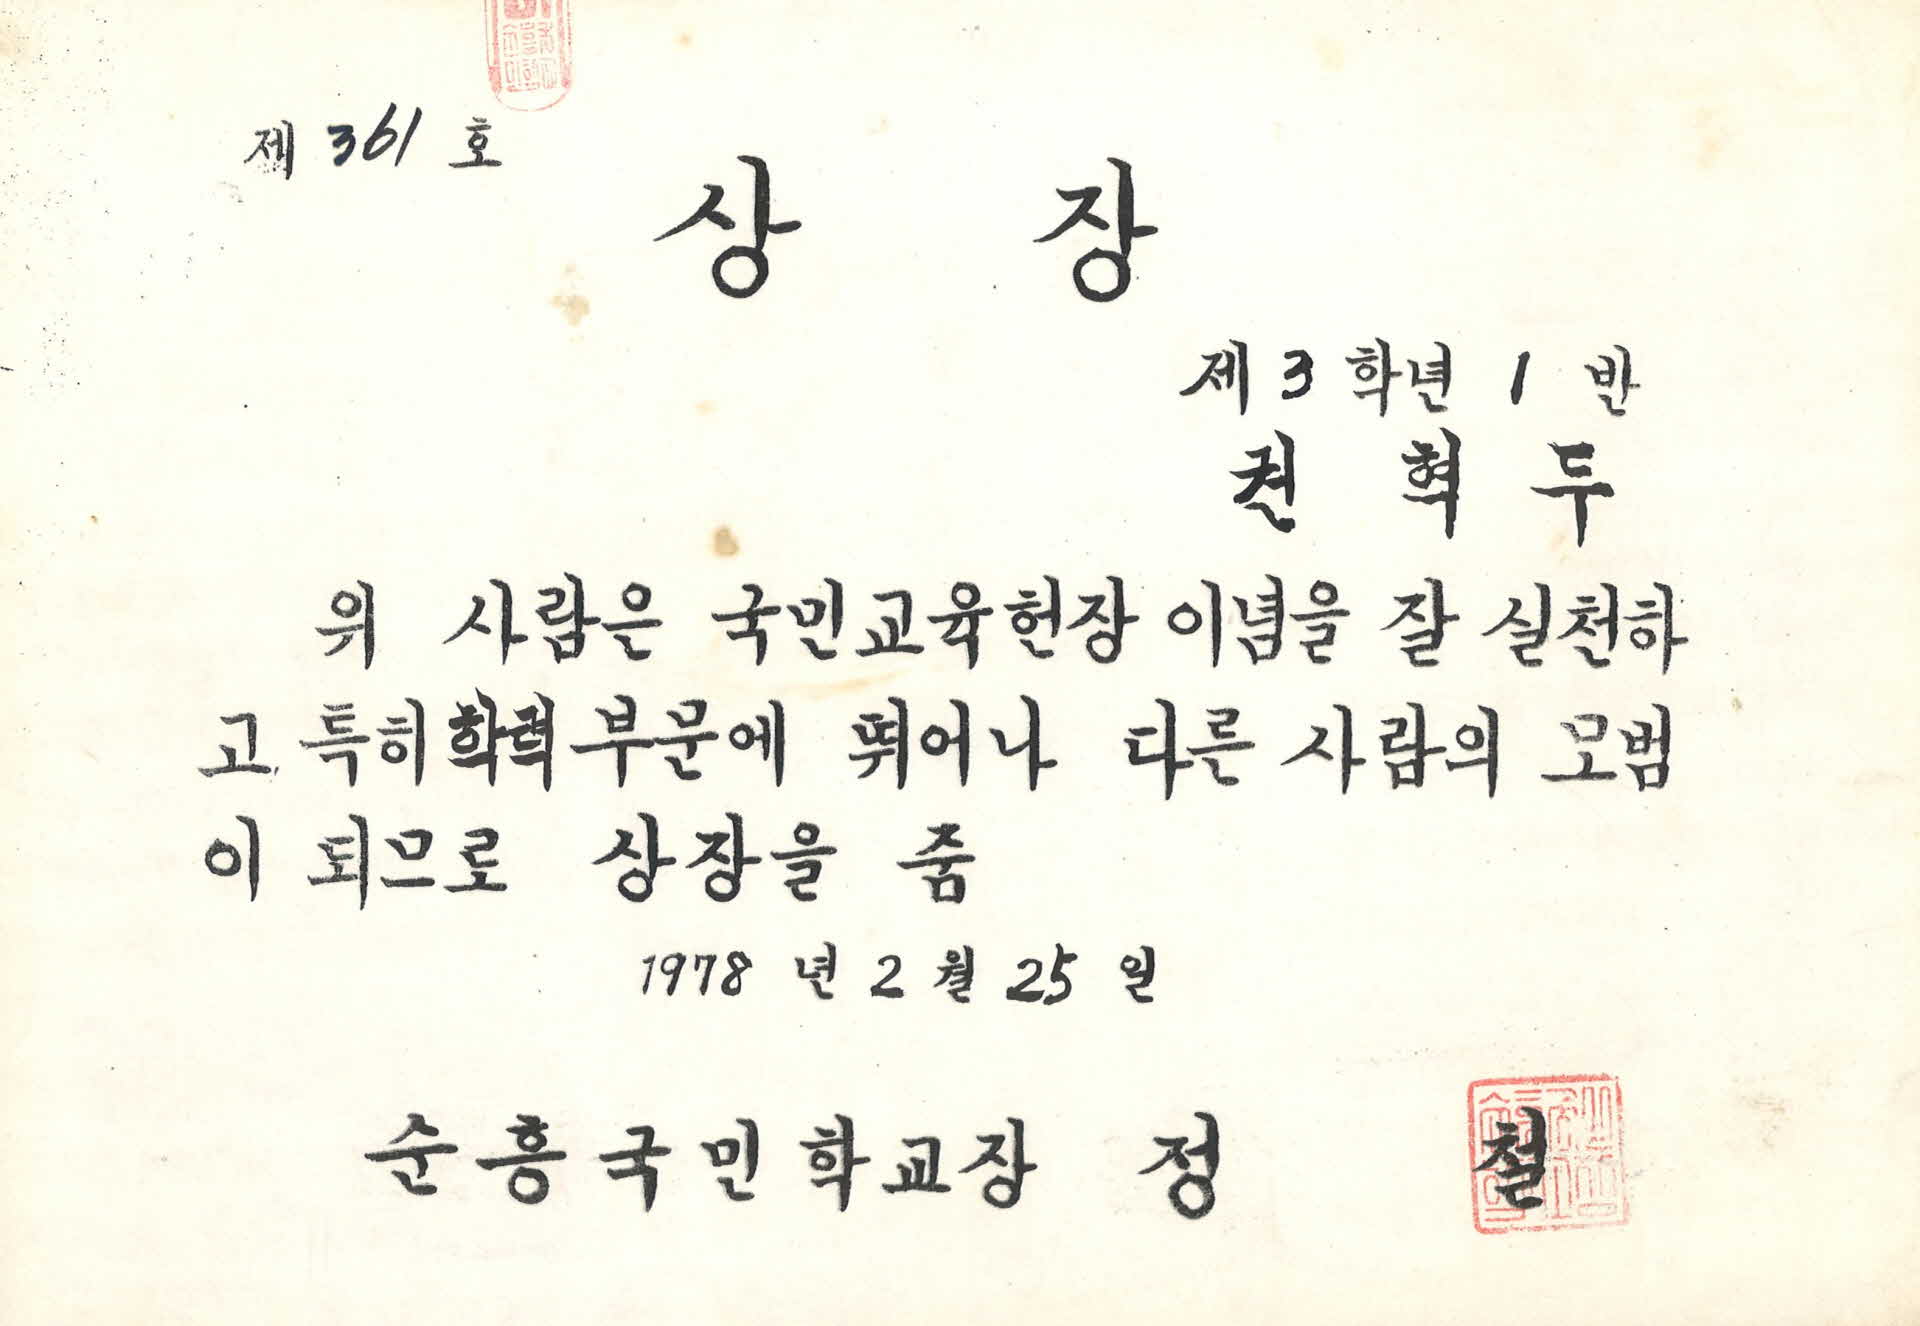 제 361 호
상 장
제 3 학년 1 반
권 혁 두
위 사람은 국민교육헌장 이념을 잘 실천하
고 특히 학력 부문에 뛰어나 다른 사람의 모범
이 되므로 상장을 줌
1978 년 2 월 25 일
순흥국민학교장 정 철